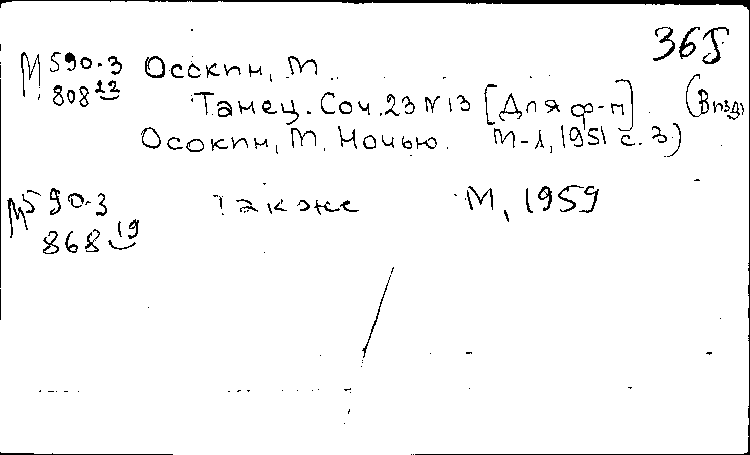 365
М 590-3 Осокин, М.
808 22
Танец. Соч. 23 № 13 [Для ф-п] (В изд:
Осокин, М. Ночью. М-Л, 1951 с. 3)
М 590-3 Также М, 1959
868 19